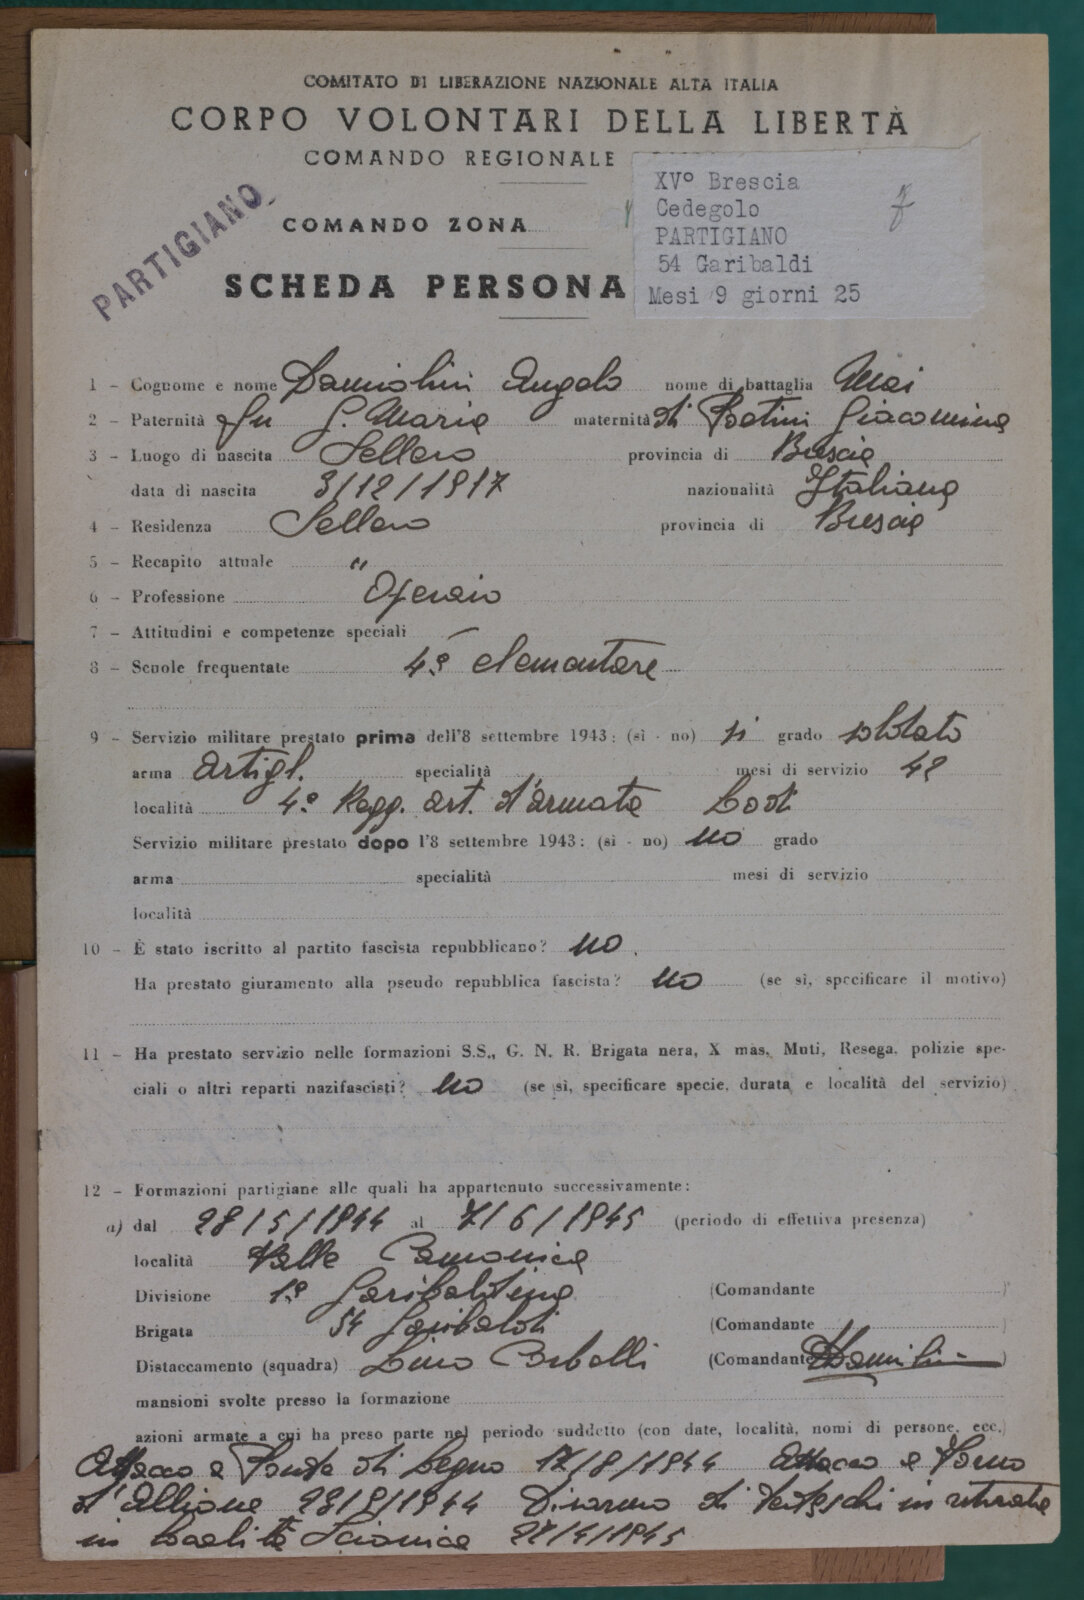 COMITATO DI LIBERAZIONE NAZIONALE ALTA ITALIA
CORPO VOLONTARI DELLA LIBERTÀ
COMANDO REGIONALE
XVº Brescia
Cedegolo
PARTIGIANO
54 Garibaldi
Mesi 9 giorni 25
PARTIGIANO
COMANDO ZONA
SCHEDA PERSONA
1 - Cognome e nome Damiolini Angelo nome di battaglia Mai
2 - Paternità fu G. Maria maternità di Botini Giacomina
3 - Luogo di nascita Sellero provincia di Brescia
data di nascita 3/12/1917 nazionalità Italiana
4 - Residenza Sellero provincia di Brescia
5 - Recapito attuale "
6 - Professione Operaio
7 - Attitudini e competenze speciali –
8 - Scuole frequentate 4ª elementare
9 - Servizio militare prestato prima dell'8 settembre 1943: (sì - no) si grado soldato
arma Artigl. specialità mesi di servizio 42
località 4º Regg. art. d'armata Lodi
Servizio militare prestato dopo l'8 settembre 1943: (sì - no) no grado
arma specialità mesi di servizio
località
10 - È stato iscritto al partito fascista repubblicano? no.
Ha prestato giuramento alla pseudo repubblica fascista? no (se sì, specificare il motivo)
11 - Ha prestato servizio nelle formazioni S.S., G. N. R. Brigata nera, X mas, Muti, Resega, polizie spe-
ciali o altri reparti nazifascisti? no (se sì, specificare specie, durata e località del servizio)
12 - Formazioni partigiane alle quali ha appartenuto successivamente:
a) dal 28/5/1944 al 7/6/1945 (periodo di effettiva presenza)
località Valle Camonica
Divisione 1ª Garibaldina (Comandante )
Brigata 54 Garibaldi (Comandante )
Distaccamento (squadra) Lino Belotti (Comandante Damiolini )
mansioni svolte presso la formazione
azioni armate a cui ha preso parte nel periodo suddetto (con date, località, nomi di persone, ecc.)
Attacco a Ponte di Legno 17/8/1944 Attacco a Forno
d'Allione 28/9/1944 Disarmo di tedeschi in ritirata
in località Scianica 27/4/1945